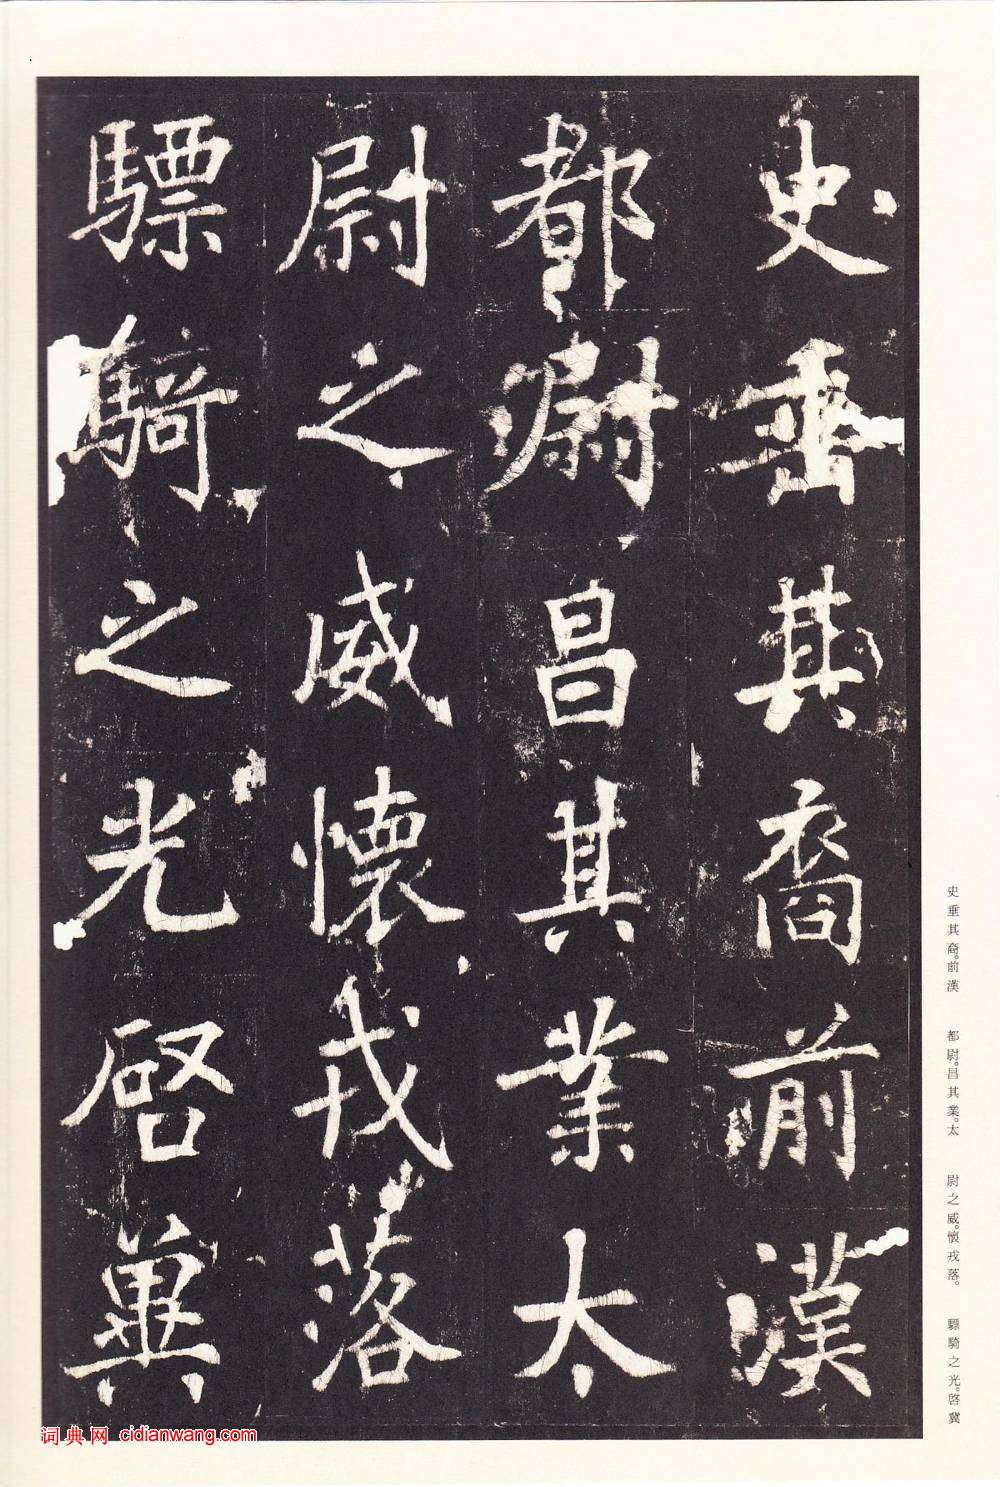 史垂其裔前漢
都尉昌其業太
尉之威懷戎落
驃騎之光啓冀
史垂其裔。前漢
都尉。昌其業。太
尉之威。懷戎落。
驃騎之光。啓冀
词典网 cidianwang.com